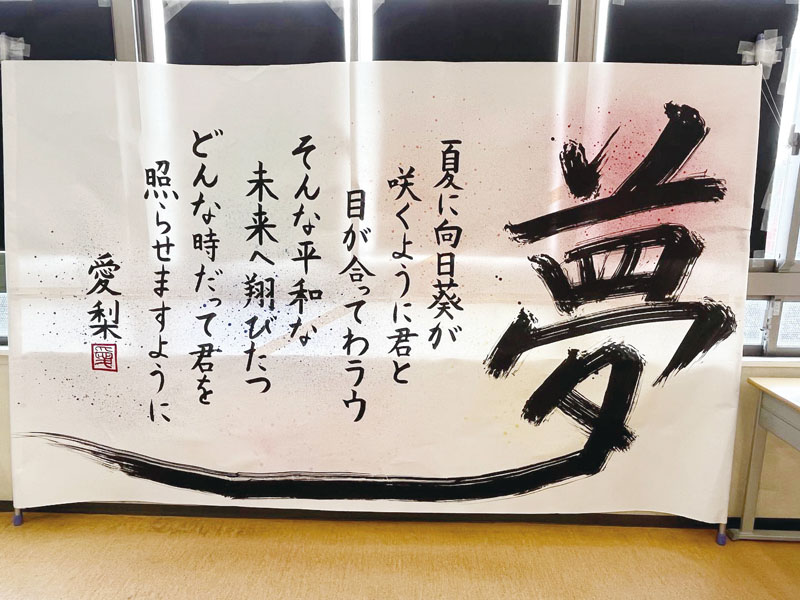 夢
夏に向日葵が
咲くように君と
目が合ってわラウ
そんな平和な
未来へ翔びたつ
どんな時だって君を
照らせますように
愛梨